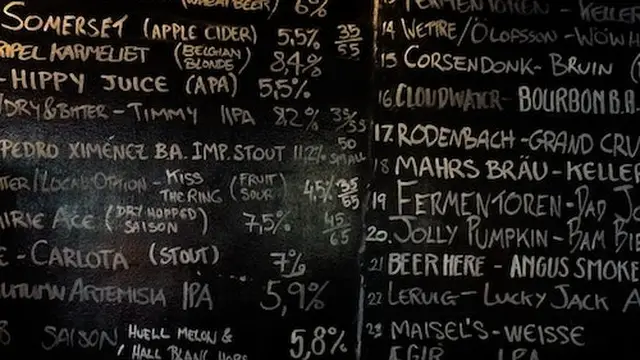 (WHEAT BEER) 6%
SOMERSET (APPLE CIDER) 5,5% 35/55
TRIPEL KARMELIET (BELGIAN BLONDE) 8,4%
-HIPPY JUICE (APA) 5,5%
/DRY&BITTER-TIMMY IIPA 8,2% 35/55
PEDRO XIMÉNEZ BA. IMP. STOUT 11,2% 50 SMALL
/LOCAL OPTION - KISS THE RING (FRUIT SOUR) 4,5% 35/55
IRIE ACE (DRY HOPPED SAISON) 7,5% 45/65
- CARLOTA (STOUT) 7%
AUTUMN ARTEMISIA IPA 5,9%
SAISON HUELL MELON & 5,8%
HALL BLANC HOPS
FERMENTOREN - KELLER
14 WETTRE/ÖLOFSSON - WÖWH
15 CORSENDONK - BRUIN (
16 CLOUDWATER - BOURBON B.A.
17. RODENBACH - GRAND CRU
18 MAHRS BRÄU - KELLER
19 FERMENTOREN - DAD J
20. JOLLY PUMPKIN - BAM BI
21 BEER HERE - ANGUS SMOKE
22 LERVIG - LUCKY JACK A
23 MAISEL'S - WEISSE
ÆGIR IPA